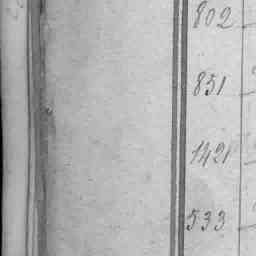 802
831
1421
533